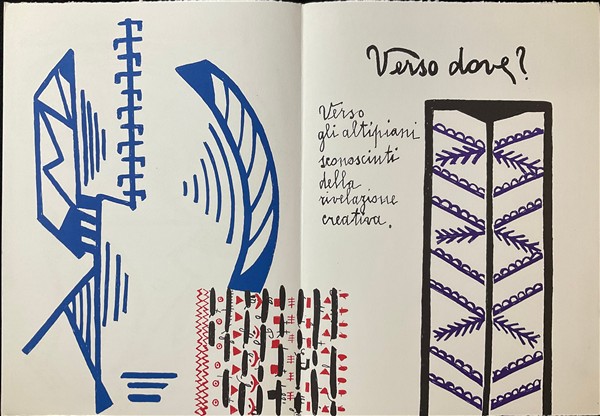 Verso dove?
Verso
gli altipiani
sconosciuti
della
rivelazione
creativa.